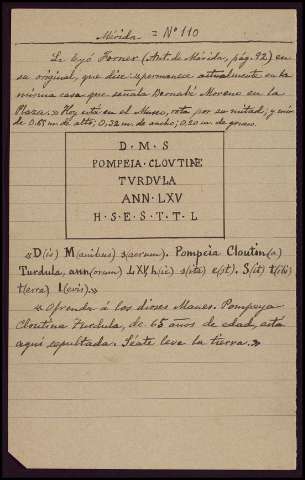 Mérida = Nº 110
Le leyó Forner (Ant. de Mérida, pág. 92) en
su original, que dice: «permanece actualmente en la
misma casa que señala Bernabé Moreno en la
Plaza.» Hoy está en el Museo, rota por su mitad, y mide
0.65 m. de alto; 0,32 m. de ancho; 0,20 m. de grueso.
D · M · S
POMPEIA · CLOVTINE
TVRDVLA
ANN · LXV
H · S · E · S · T · T · L
«D(is) M(anibus) s(acrum). Pompeia Cloutin(a)
Turdula, ann(orum) LXV, h(ic) s(ita) e(st). S(it) t(ibi)
t(erra) l(evis).»
«Ofrenda á los dioses Manes. Pompeya
Cloutina Turdula, de 65 años de edad, está
aquí sepultada. Séate leve la tierra.»